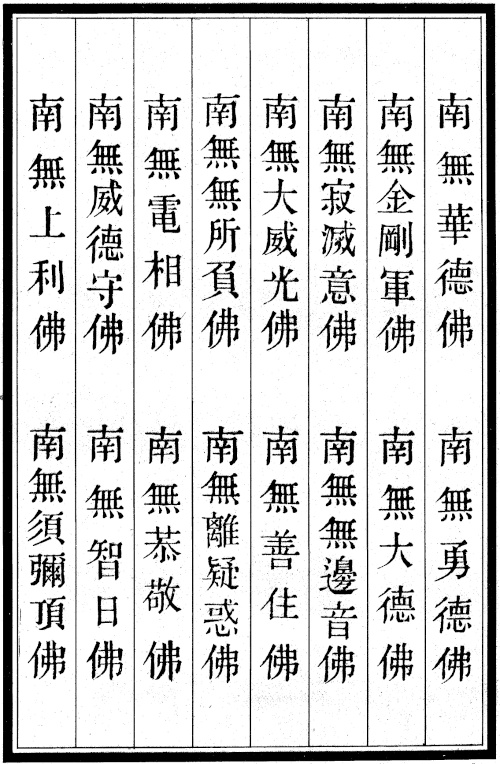 南無華德佛　南無勇德佛
南無金剛軍佛　南無大德佛
南無寂滅意佛　南無無邊音佛
南無大威光佛　南無善住佛
南無無所負佛　南無離疑惑佛
南無電相佛　南無恭敬佛
南無威德守佛　南無智日佛
南無上利佛　南無須彌頂佛